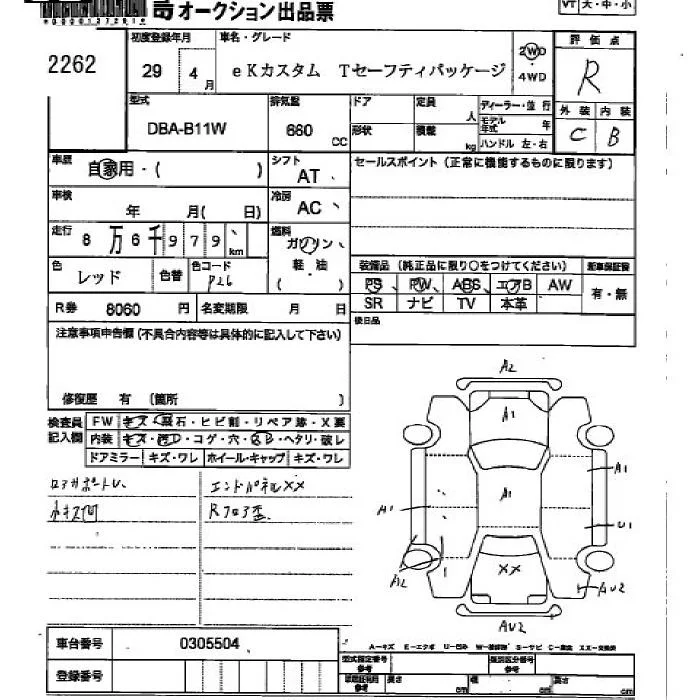 オークション出品票
VT 大・中・小
2262
初度登録年月
29 4 月
車名・グレード
eKカスタム Tセーフティパッケージ
2WD・4WD
評価点
R
外装 内装
C B
型式
DBA-B11W
排気量
660 CC
ドア
形状
定員 人
積載 kg
ディーラー・並行
モデル年式 年
ハンドル 左・右
車歴
自家用・( )
シフト
AT
セールスポイント(正常に機能するものに限ります)
車検
年 月( 日)
冷房
AC
走行
8万6千979 km
燃料
ガソリン
軽・油
( )
色
レッド
色替
色コード
P26
装備品(純正品に限り○をつけてください)
新車保証書
PS PW ABS エアB AW
SR ナビ TV 本革
有・無
R券 8060 円
名変期限 月 日
後日品
注意事項申告欄(不具合内容等は具体的に記入して下さい)
修復歴 有 (箇所 )
検査員記入欄
FW キズ・飛石・ヒビ割・リペア跡・X要
内装 キズ・汚レ・コゲ・穴・ヘタリ・破レ
ドアミラー キズ・ワレ ホイール・キャップ キズ・ワレ
コアサポートレ、
エンドパネルXX
Rフロア歪
A2
A1
A1
A1
A1
U1
A2
XX
AU2
AU2
車台番号 0305504
登録番号
A-キズ E-エクボ U-凹み S-サビ C-腐食 XX-交換済
型式指定番号 参考
類別区分番号 参考
長さ cm 幅 cm 高さ cm